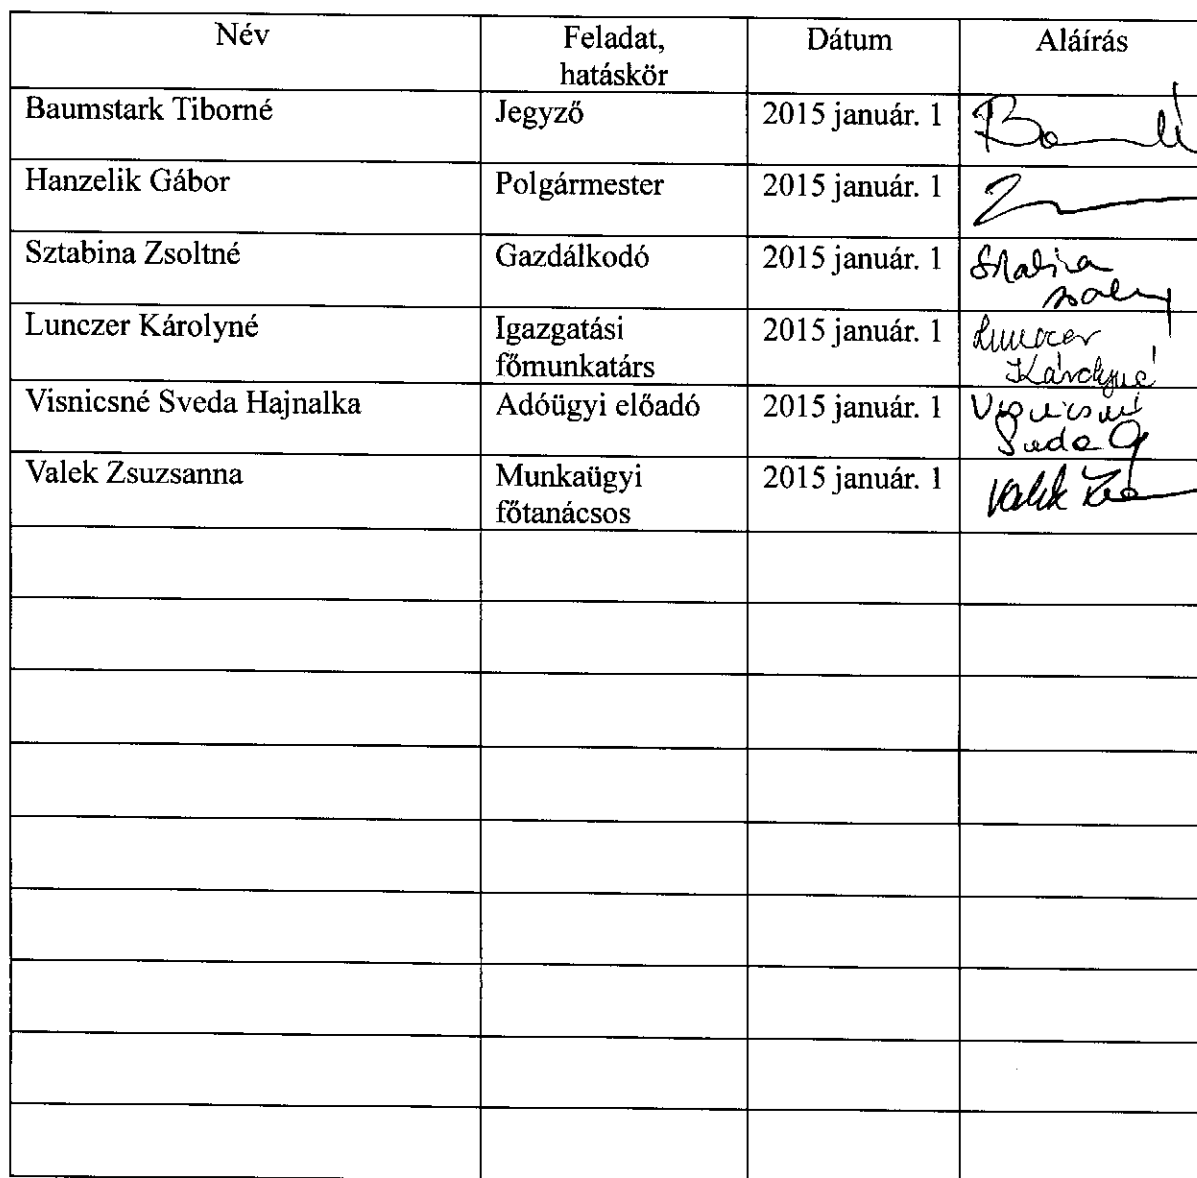 Név Feladat, hatáskör Dátum Aláírás
Baumstark Tiborné Jegyző 2015 január. 1
Hanzelik Gábor Polgármester 2015 január. 1
Sztabina Zsoltné Gazdálkodó 2015 január. 1
Lunczer Károlyné Igazgatási főmunkatárs 2015 január. 1 Lunczer Károlyné
Visnicsné Sveda Hajnalka Adóügyi előadó 2015 január. 1
Valek Zsuzsanna Munkaügyi főtanácsos 2015 január. 1 Valek